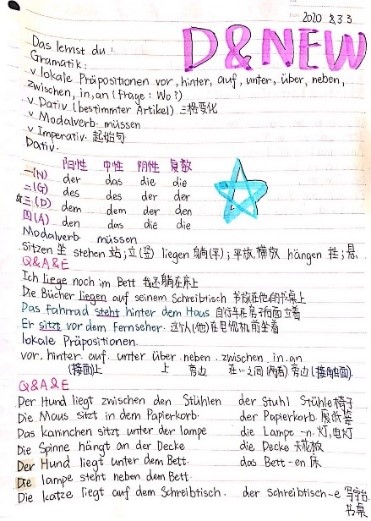 2020 8.3.3
D&NEW
Das lernst du:
Gramatik:
v lokale Präpositionen vor, hinter, auf, unter, über, neben,
zwischen, in, an (Frage: Wo?)
v Dativ (bestimmter Artikel) 三格变化
v Modalverb müssen
v Imperativ 起始句
Dativ.
阳性 中性 阴性 复数
一(N) der das die die
二(G) des des der der
三(D) dem dem der den
四(A) den das die die
Modalverb müssen
Sitzen 坐 stehen 站;立(竖) liegen 躺(平);平放 横放 hängen 挂;悬
Q&A&E
Ich liege noch im Bett 我还躺在床上
Die Bücher liegen auf seinem Schreibtisch 书放在他的书桌上
Das Fahrrad steht hinter dem Haus 自行车在房子后面立着
Er sitzt vor dem Fernseher. 这个人(他)在电视机前坐着
lokale Präpositionen
vor. hinter. auf. unter. über. neben. zwischen. in. an
(接面)上 上 旁边 在…之间(两者) 旁边(接触面)
Q&A&E
Der Hund liegt zwischen den Stühlen der Stuhl Stühle 椅子
Die Maus sitzt in dem Papierkorb. der Papierkorb 废纸篓
Das kaninchen sitzt unter der lampe die Lampe -n. 灯,电灯
Die Spinne hängt an der Decke die Decke 天花板
Der Hund liegt unter dem Bett. das Bett -en 床
Die lampe steht neben dem Bett.
Die katze liegt auf dem Schreibtisch. der schreibtisch -e 写字台
书桌